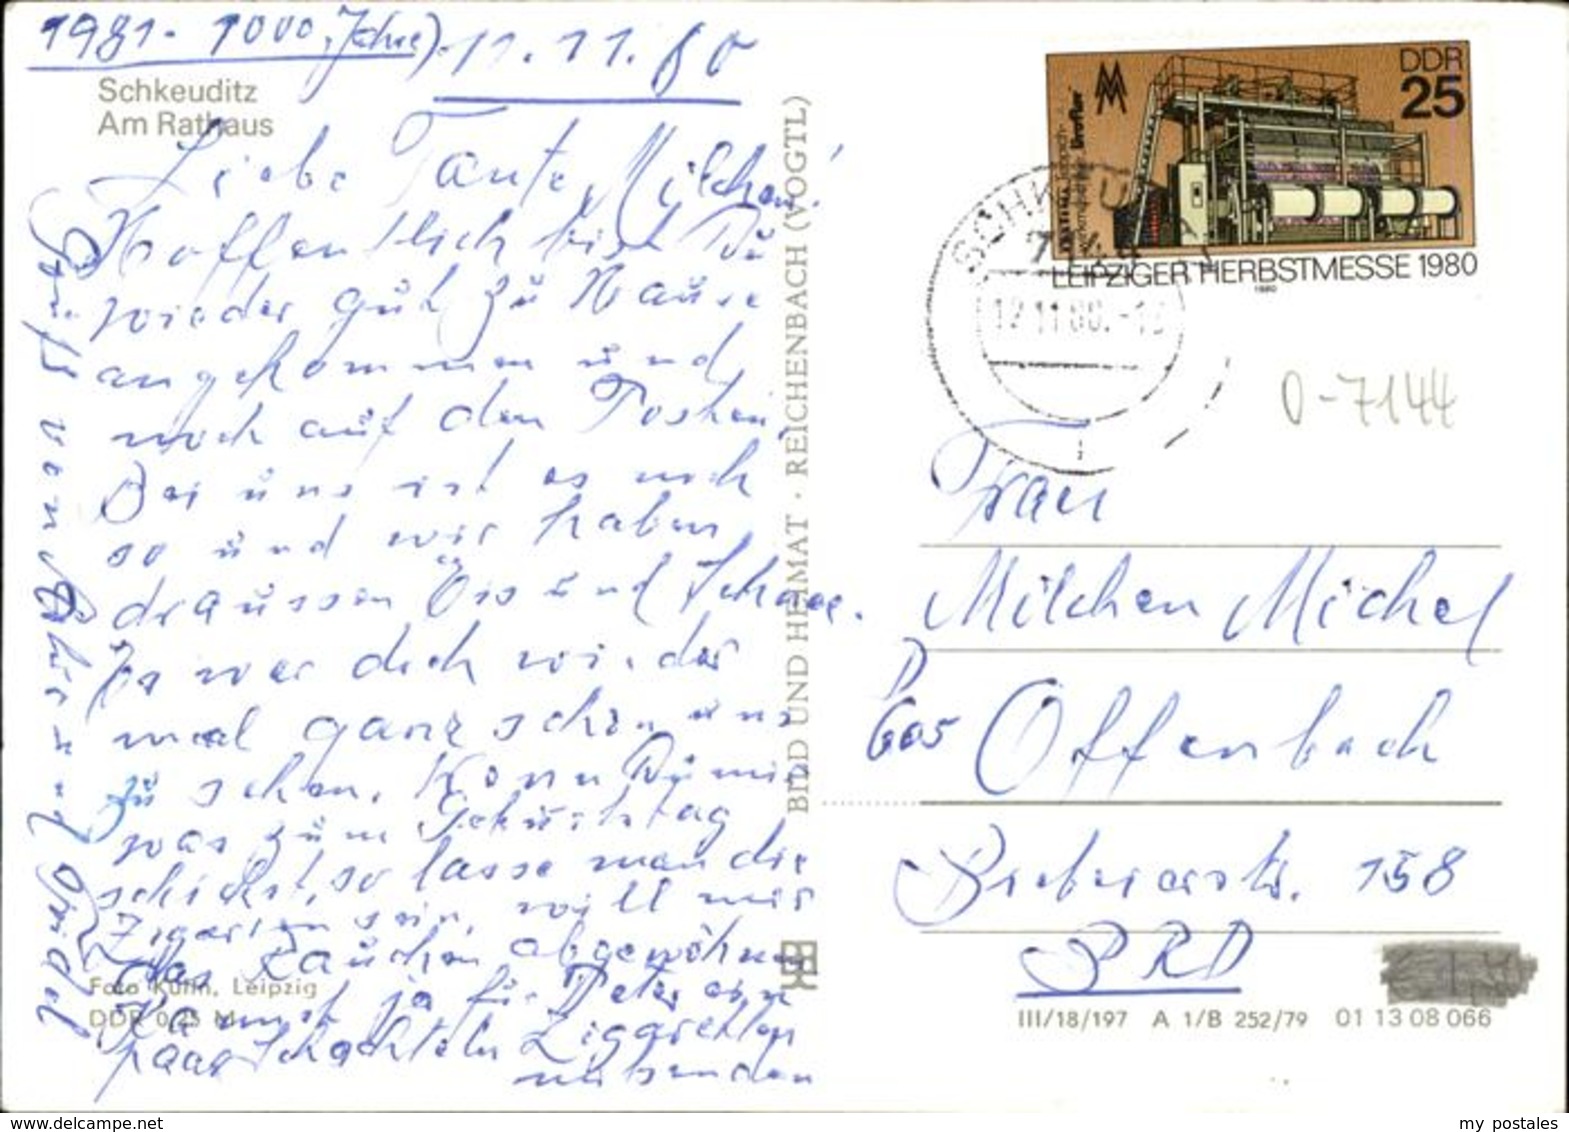 1981 - 1000 Jahre). 11.11.80
Schkeuditz
Am Rathaus
Liebe Tante Milchen!
Hoffentlich bist Dü
wieder güt zü Haüse
angekommen ünd
noch aüf den Posten.
Bei üns ist es noch
so ünd wir haben
draüssen Eis ünd Schnee.
Es war doch wieder
mal ganz schön üns
zü sehen. Kann Dü mir
was züm Gebürtstag
schickst, so lasse man die
Zigarren sein, will mir
das Raüchen abgewöhnen
Kannst ja für Peter ein
paar Schachteln Ziggaretten
mitsenden
Foto Kühn, Leipzig
DDR 0,25 M
BILD UND HEIMAT · REICHENBACH (VOGTL)
DDR
25
LEIPZIGER HERBSTMESSE 1980
1980
SCHKEUDITZ
12.11.80
0-7144
Frau
Milchen Michel
D
605 Offenbach
Biebererstr. 158
BRD
III/18/197 A 1/B 252/79 01 13 08 066
my postales